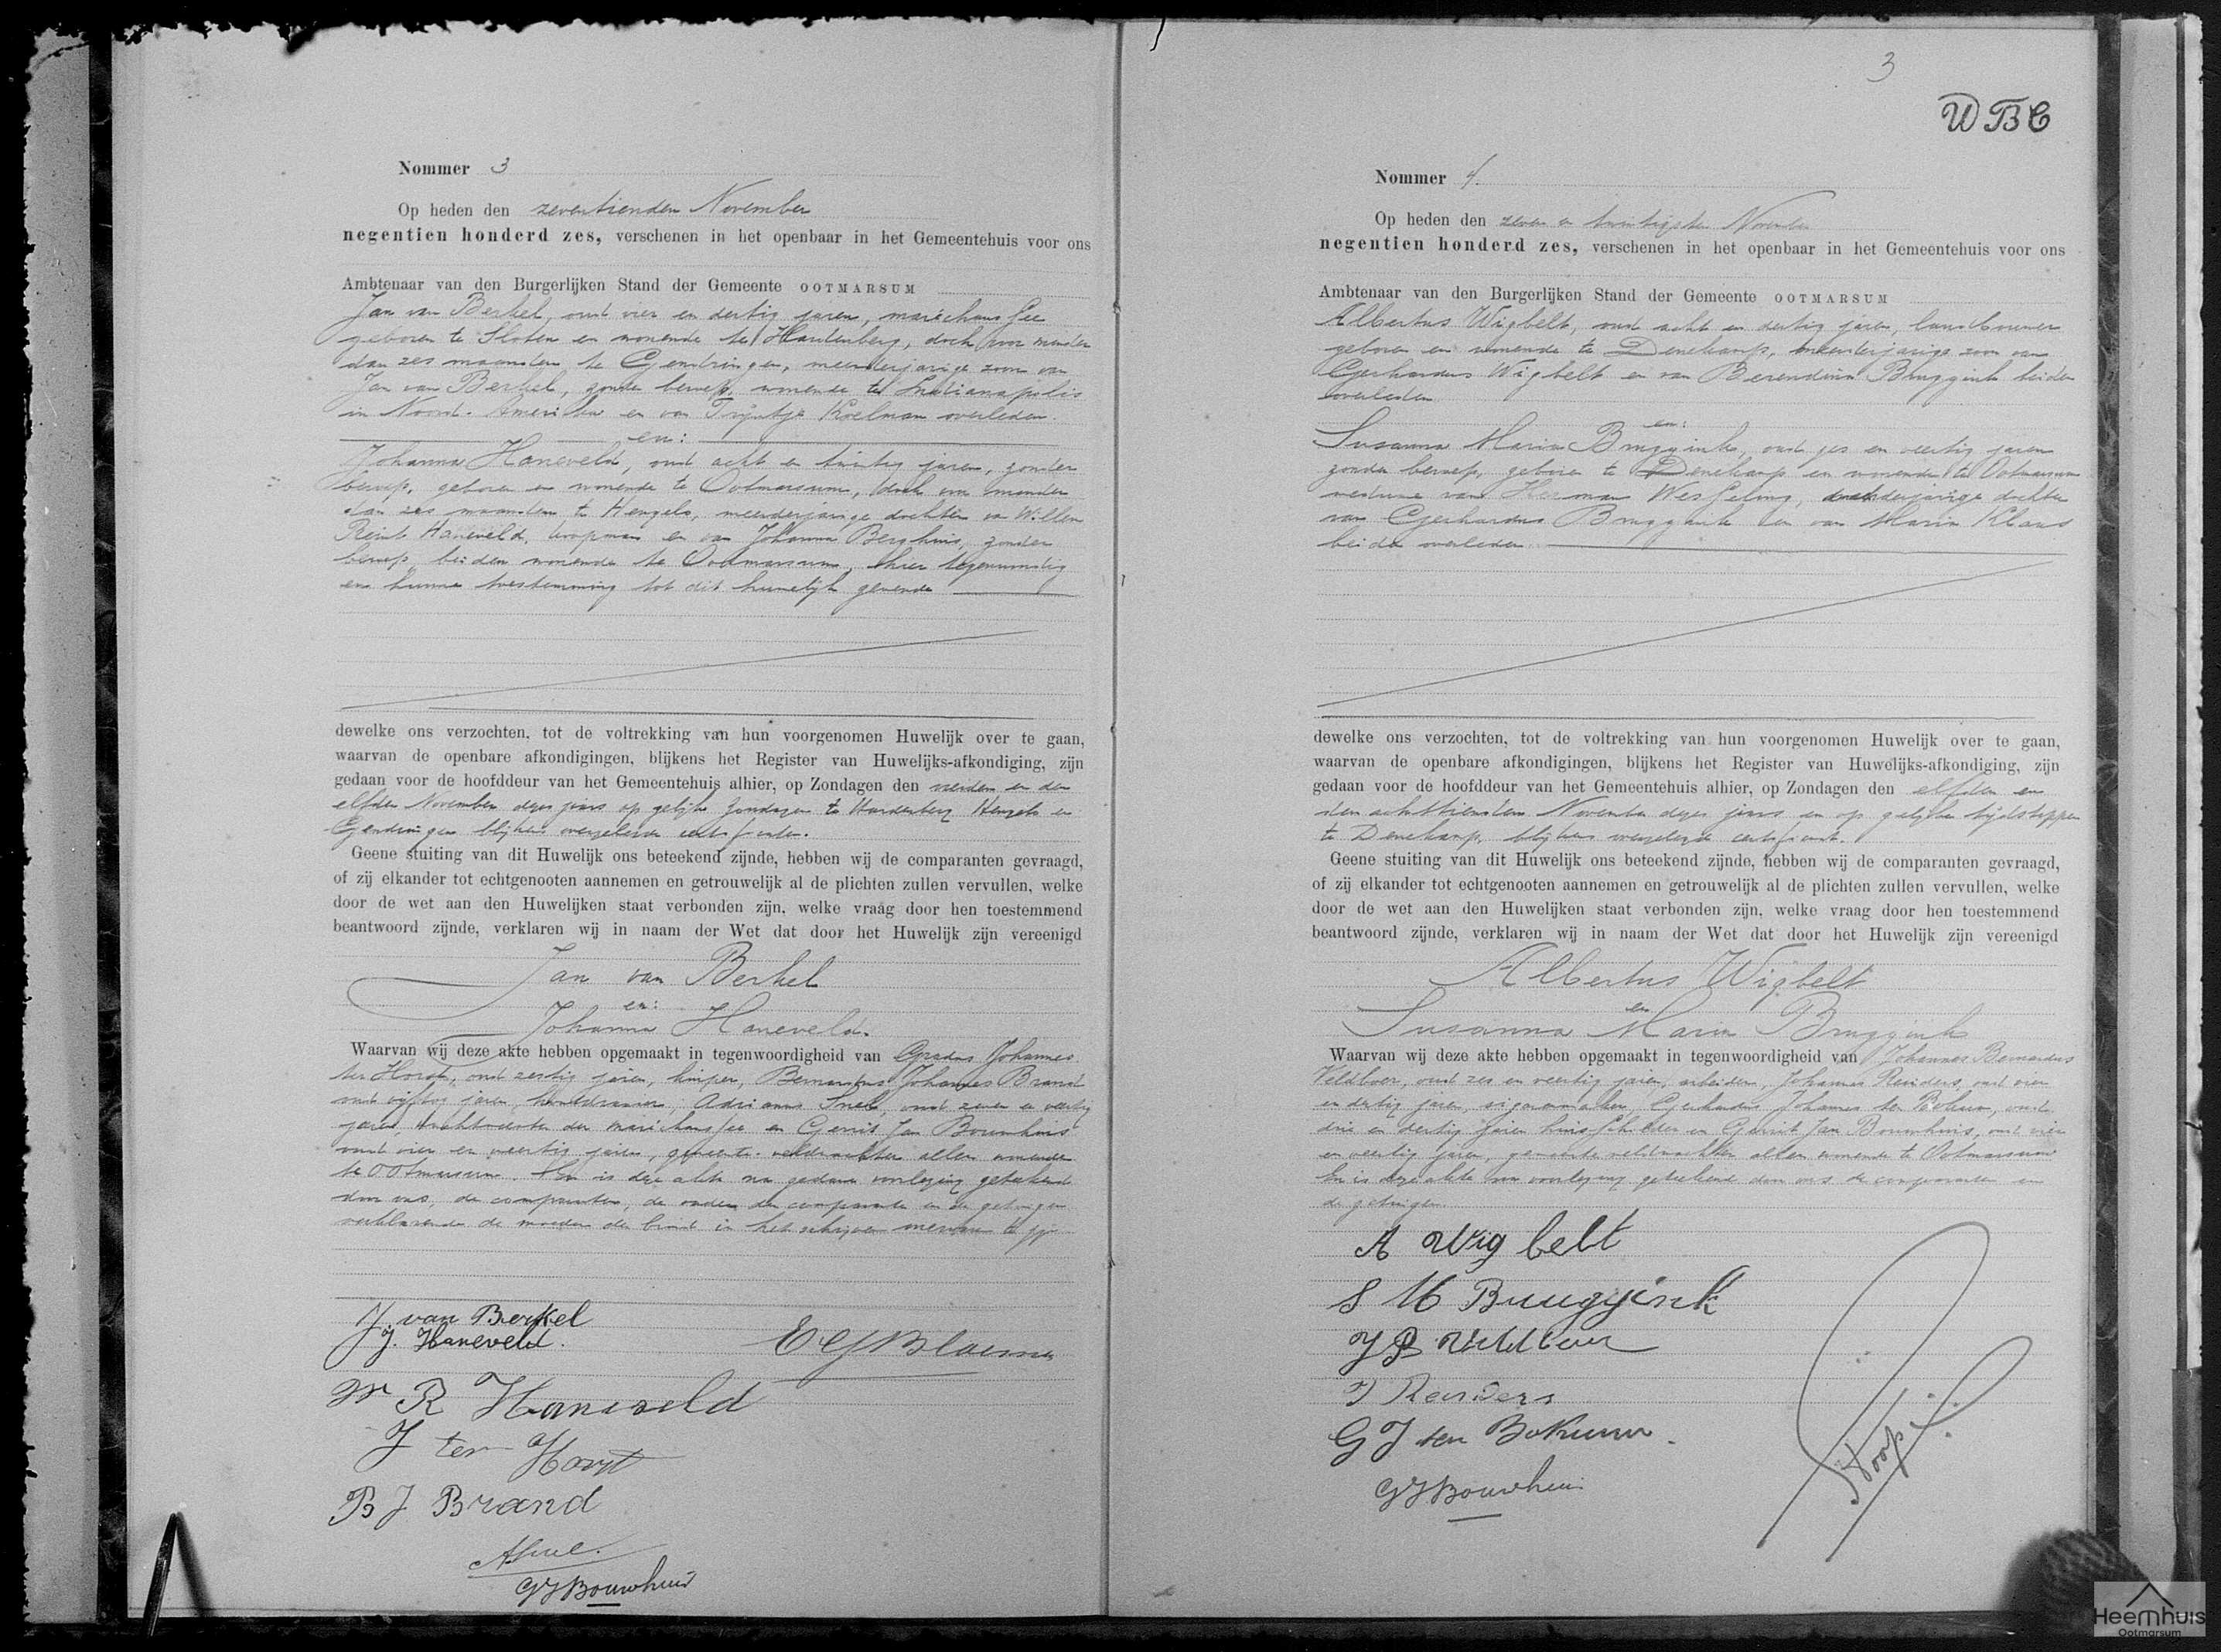 Nommer 3
Op heden den zeventienden November
negentien honderd zes, verschenen in het openbaar in het Gemeentehuis voor ons
Ambtenaar van den Burgerlijken Stand der Gemeente OOTMARSUM
Jan van Berkel, oud vier en dertig jaren, maréchaussee
geboren te Sloten en wonende te Hardenberg, doch voor minder
dan zes maanden te Gendringen, meerderjarige zoon van
Jan van Berkel, zonder beroep, wonende te Indianapolis
in Noord-Amerika en van Trijntje Koelman overleden.
en:
Johanna Haneveld, oud acht en twintig jaren, zonder
beroep, geboren en wonende te Ootmarsum, doch voor minder
dan zes maanden te Hengelo, meerderjarige dochter van Willem
Reint Haneveld, koopman en van Johanna Berghuis, zonder
beroep, beiden wonende te Ootmarsum, hier tegenwoordig
en hunne toestemming tot dit huwelijk gevende
dewelke ons verzochten, tot de voltrekking van hun voorgenomen Huwelijk over te gaan,
waarvan de openbare afkondigingen, blijkens het Register van Huwelijks-afkondiging, zijn
gedaan voor de hoofddeur van het Gemeentehuis alhier, op Zondagen den vierden en den
elfden November dezes jaars op gelijke zondagen te Hardenberg Hengelo en
Gendringen blijkens overgelegde certificaten.
Geene stuiting van dit Huwelijk ons beteekend zijnde, hebben wij de comparanten gevraagd,
of zij elkander tot echtgenooten aannemen en getrouwelijk al de plichten zullen vervullen, welke
door de wet aan den Huwelijken staat verbonden zijn, welke vraag door hen toestemmend
beantwoord zijnde, verklaren wij in naam der Wet dat door het Huwelijk zijn vereenigd
Jan van Berkel
en:
Johanna Haneveld.
Waarvan wij deze akte hebben opgemaakt in tegenwoordigheid van Gradus Johannes
ter Horst, oud zestig jaren, kuiper, Bernardus Johannes Brand
oud vijftig jaren, Adrianus Snel, oud zeven en veertig
jaren, wachtmeester der maréchaussee en Gerrit Jan Bouwhuis
oud vier en veertig jaren, gemeente-veldwachter allen wonende
te Ootmarsum. En is deze akte na gedane voorlezing geteekend
door ons, de comparanten, de vader der comparante en de getuigen
verklarende de moeder der bruid in het schrijven onervaren te zijn
J. van Berkel
J. Haneveld.
W R Haneveld
J ter Horst
B J Brand
ASnel.
GJBouwhuis
3
WBC
Nommer 4.
Op heden den zeven en twintigsten November
negentien honderd zes, verschenen in het openbaar in het Gemeentehuis voor ons
Ambtenaar van den Burgerlijken Stand der Gemeente OOTMARSUM
Albertus Wigbelt, oud acht en dertig jaren, landbouwer
geboren en wonende te Denekamp, meerderjarige zoon van
Gerhardus Wigbelt en van Berendina Bruggink beiden
overleden
en:
Susanna Maria Bruggink, oud zes en veertig jaren
zonder beroep, geboren te Denekamp en wonende te Ootmarsum
weduwe van Herman Wesseling, meerderjarige dochter
van Gerhardus Bruggink en van Maria Klaas
beiden overleden.
dewelke ons verzochten, tot de voltrekking van hun voorgenomen Huwelijk over te gaan,
waarvan de openbare afkondigingen, blijkens het Register van Huwelijks-afkondiging, zijn
gedaan voor de hoofddeur van het Gemeentehuis alhier, op Zondagen den elfden en
den achttienden November dezes jaars en op gelijke tijdstippen
te Denekamp, blijkens overgelegde certificaat.
Geene stuiting van dit Huwelijk ons beteekend zijnde, hebben wij de comparanten gevraagd,
of zij elkander tot echtgenooten aannemen en getrouwelijk al de plichten zullen vervullen, welke
door de wet aan den Huwelijken staat verbonden zijn, welke vraag door hen toestemmend
beantwoord zijnde, verklaren wij in naam der Wet dat door het Huwelijk zijn vereenigd
Albertus Wigbelt
en
Susanna Maria Bruggink
Waarvan wij deze akte hebben opgemaakt in tegenwoordigheid van Johannes Bernardus
Veldboer, oud zes en veertig jaren, arbeider, Johannes Reinders, oud vier
en dertig jaren, sigarenmaker, Gerhardus Johannes ten Bokum, oud
drie en dertig jaren huisschilder en Gerrit Jan Bouwhuis, oud vier
en veertig jaren, gemeente veldwachter allen wonende te Ootmarsum
En is deze akte na voorlezing geteekend door ons de comparanten en
de getuigen.
A Wigbelt
S M Bruggink
J B Veldboer
J Reinders
G J ten Bokum
GJBouwhuis
Heemhuis
Ootmarsum